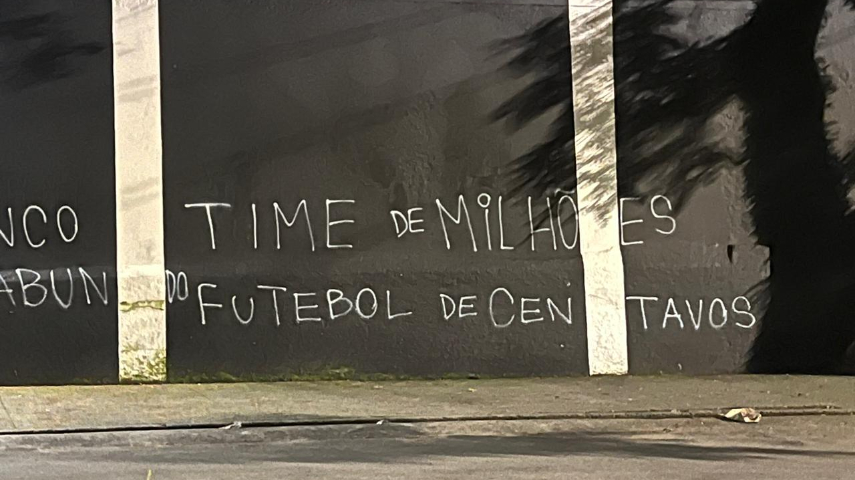 NCO TIME DE MiLHÕES
ABUNDO FUTEBOL DE CENTAVOS